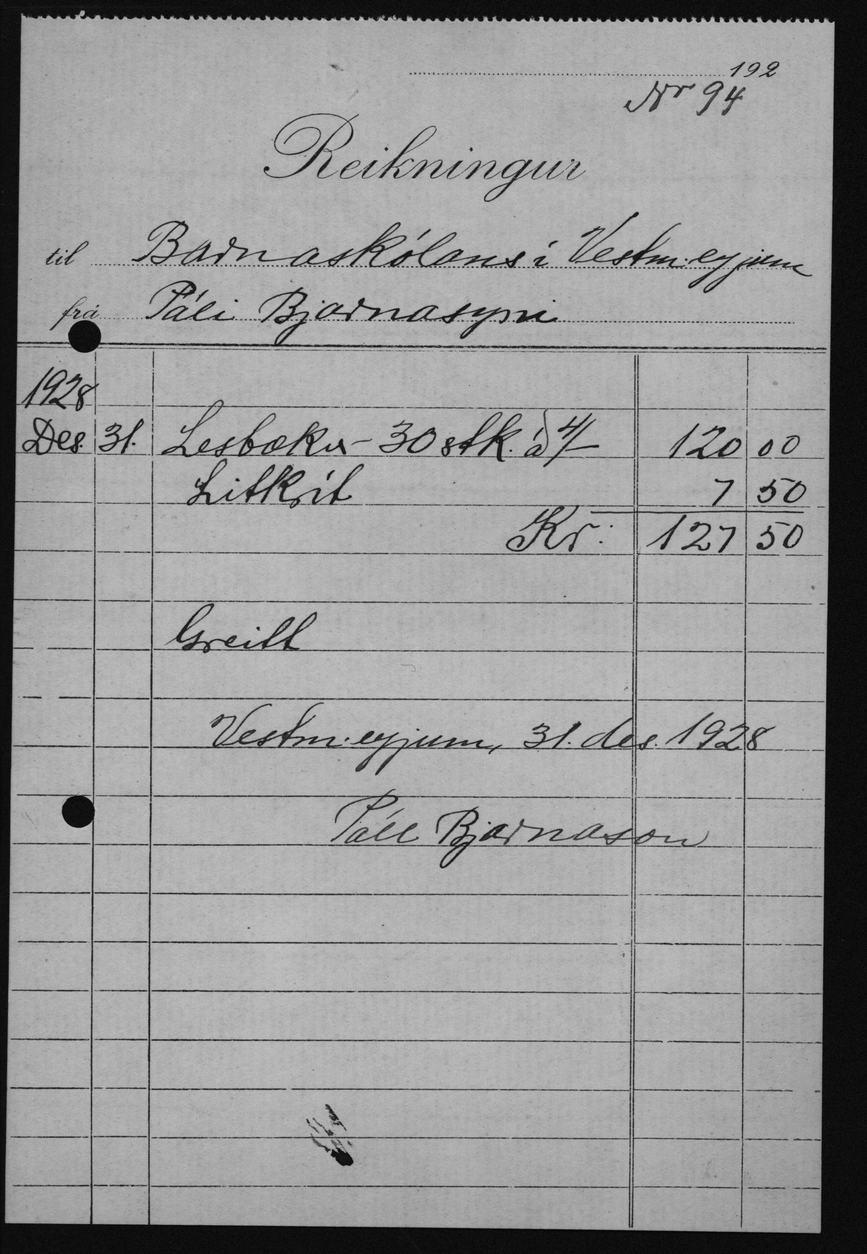 192
Nr 94
Reikningur
til Barnaskólans í Vestm.eyjum
frá Páli Bjarnasyni
1928
Des. 31. Lesbækur - 30 stk. à 4/- 120 00
Litkrít 7 50
Kr. 127 50
Greitt
Vestm.eyjum, 31. des. 1928
Páll Bjarnason